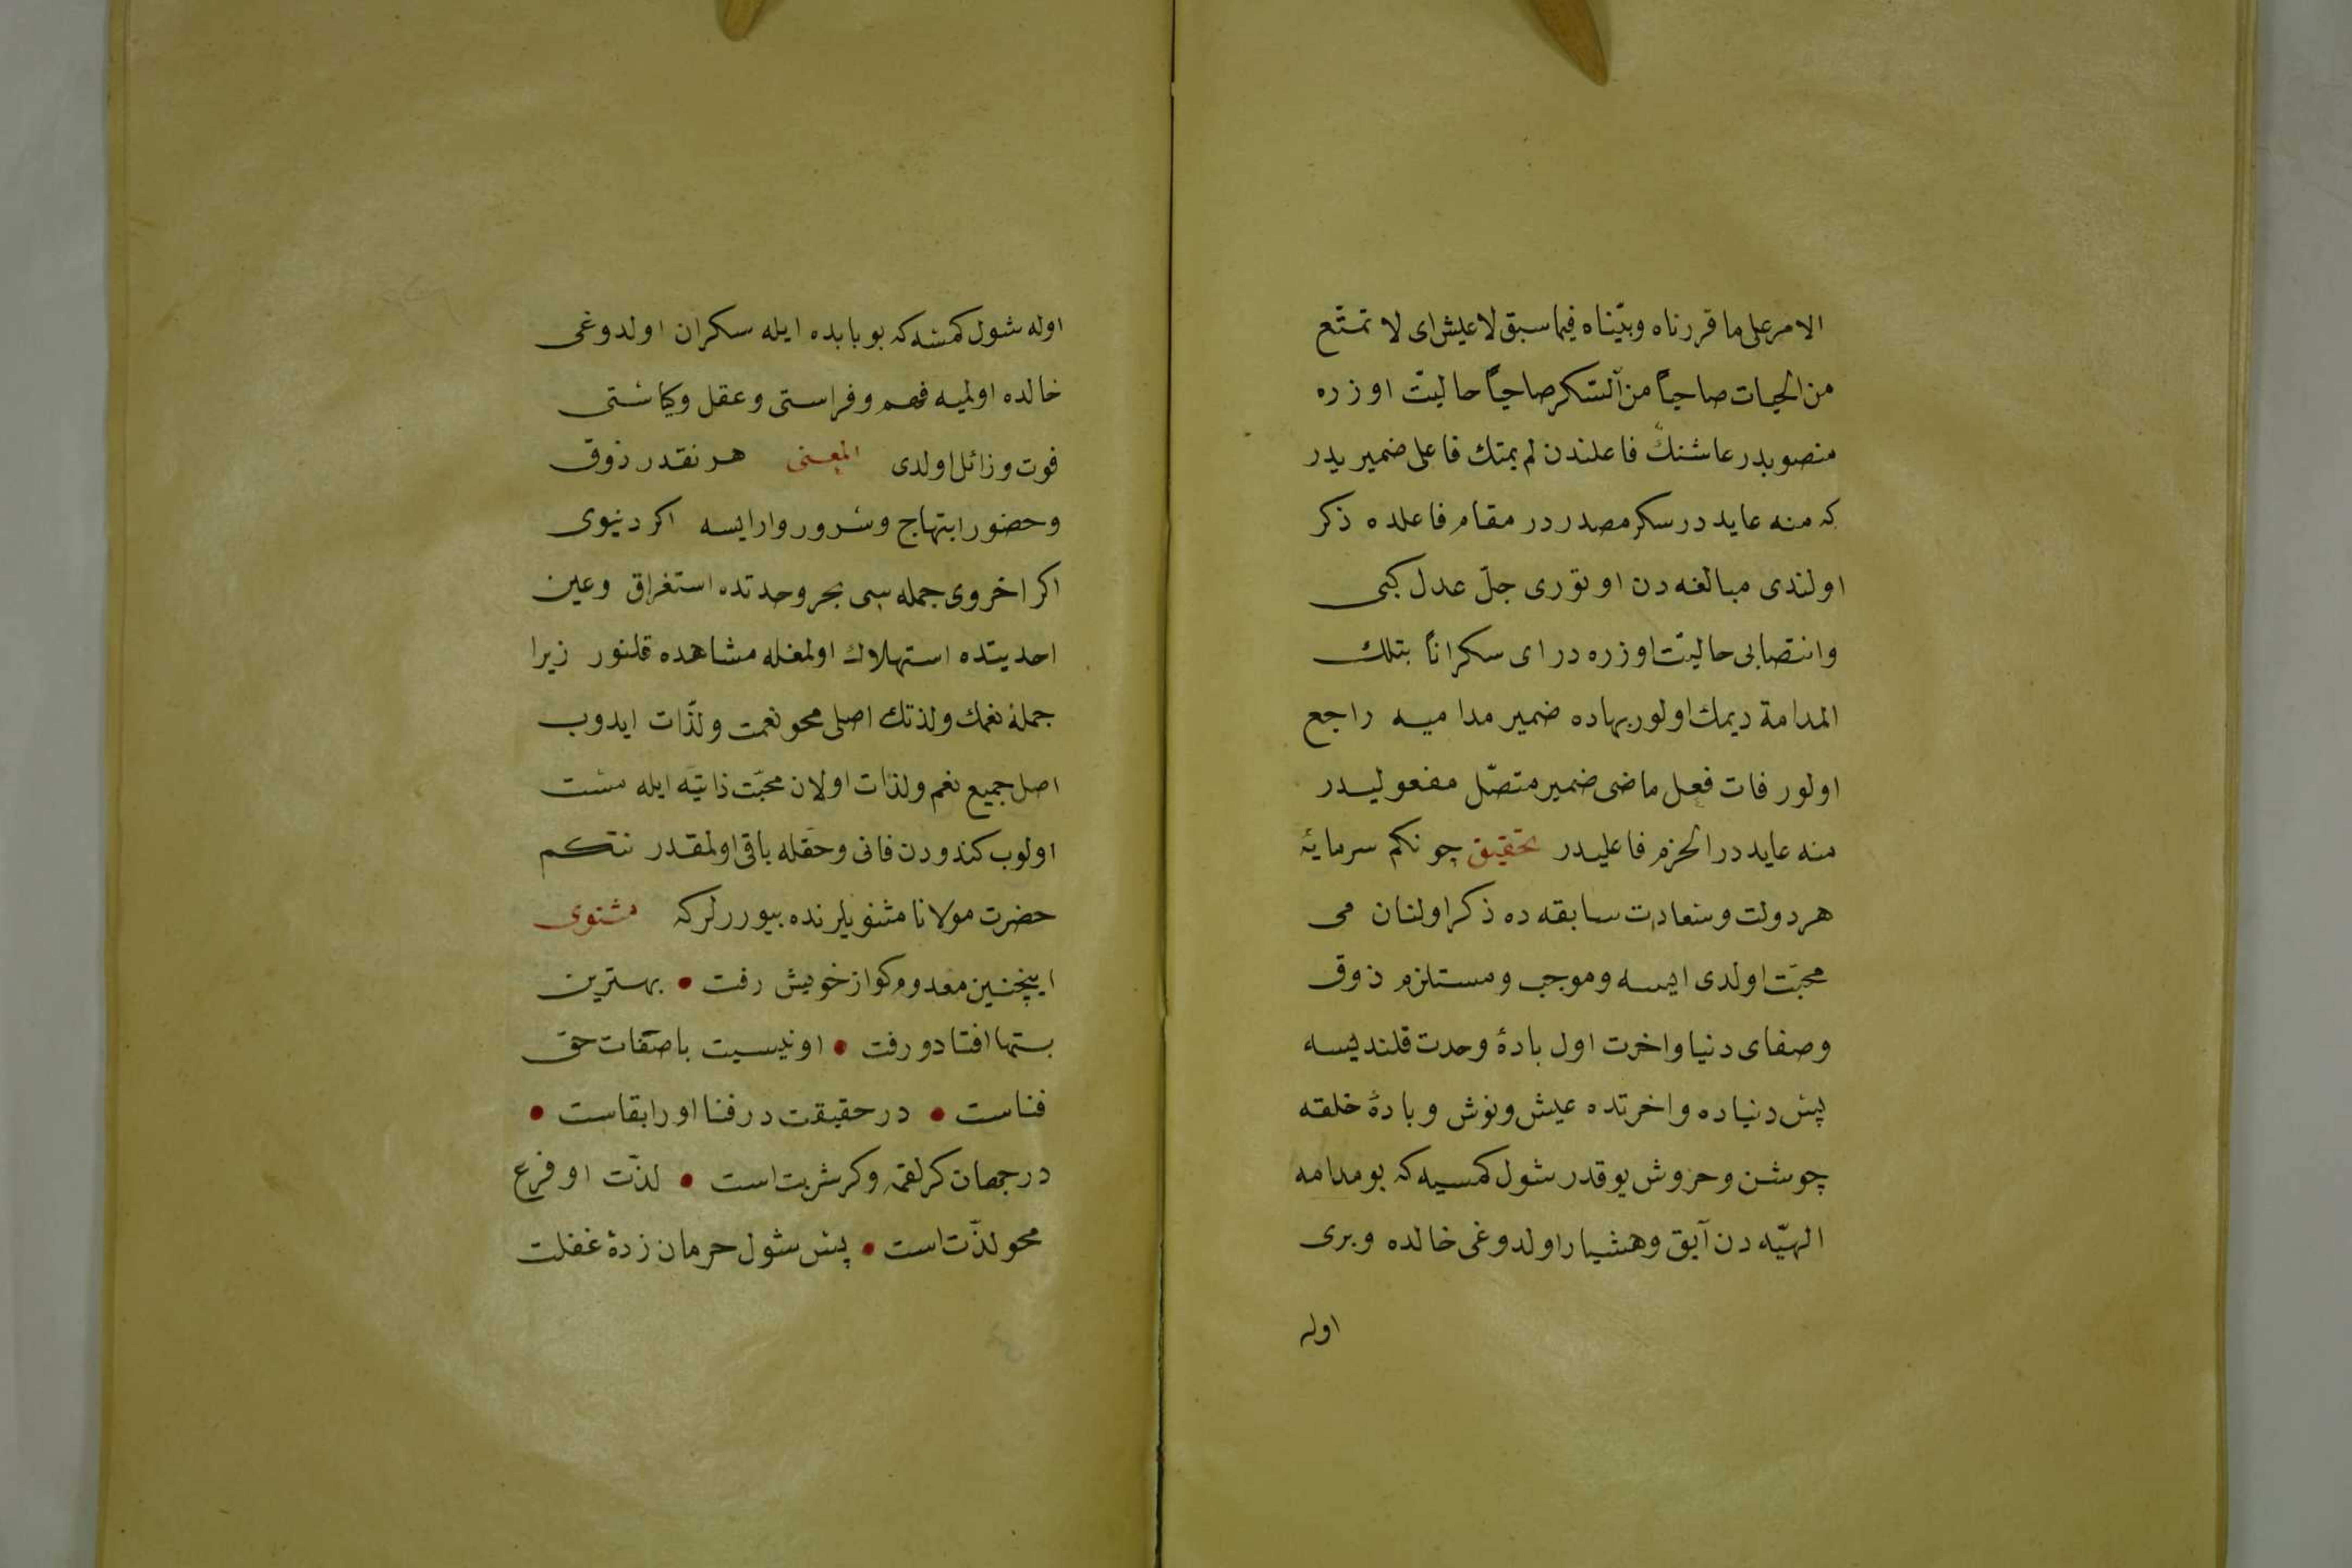 الامر على ما قررناه وبيّناه فيما سبق لا عيش اى لا تمتّع
من الحيات صاحياً من السّكر صاحياً حاليتّ اوزره
منصوبدر عاشنك فاعلندن لم يمتك فاعلى ضميريدر
كه منه عايددر سكر مصدردر مقام فاعلده ذكر
اولندى مبالغه دن اوتورى جلّ عدل كبى
وانتصابى حاليتّ اوزره در اى سكراناً بتلك
المدامة ديمك اولور بهاده ضمير مداميه راجع
اولور فات فعل ماضى ضمير متصّل مفعوليدر
منه عايددر الحزم فاعليدر تحقيق چونكم سرمايهٔ
هر دولت وسعادت سابقه ده ذكر اولنان مى
محبّت اولدى ايسه وموجب ومستلزم ذوق
وصفاى دنيا واخرت اول بادهٔ وحدت قلنديسه
پس دنياده واخرتده عيش ونوش وبادهٔ خلقه
جوشن وخروش يوقدر شول كمسيه كه بو مدامه
الهيّه دن آيق وهشيار اولدوغى خالده ويرى
اوله
اوله شول كمسه كه بو بابده ايله سكران اولدوغى
خالده اولميه فهم وفراستى وعقل وكياستى
فوت وزائل اولدى المعنى هر نقدر ذوق
وحضور ابتهاج وسرور وارايسه اكر دنيوى
اكر اخروى جمله سى بحر وحدتده استغراق وعين
احديتده استهلاك اولمغله مشاهده قلنور زيرا
جملهٔ نعمك ولذتك اصلى محو نعمت ولذّات ايدوب
اصل جميع نعم ولذات اولان محبّت ذاتيّه ايله مست
اولوب كندودن فانى وحقله باقى اولمقدر نتكم
حضرت مولانا مثنويلرنده بيوررلركه مثنوى
اينچنين معدوم كو از خويش رفت • بهترين
هستها افتاد و رفت • او نيسبت با صفات حق
فناست • در حقيقت در فنا او را بقاست •
در جهان كر لقمه وكر شربت است • لذّت او فرع
محو لذّت است • پس شول حرمان زدهٔ غفلت